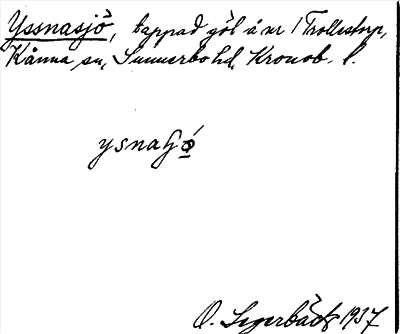 Yssnasjö, tappad göl å nr 1 Trollestorp,
Kånna sn, Sunnerbo hd, Kronob. l.
ysnaʃö́
O. Segerbäck 1937